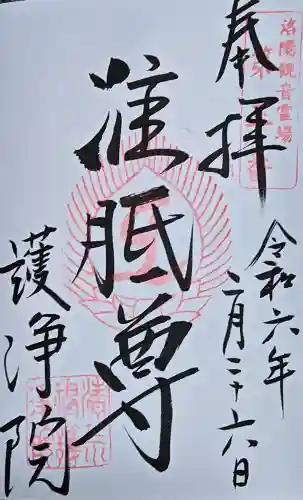 奉拝
洛陽観音霊場
第三番
准胝尊
令和六年
二月二十六日
護浄院